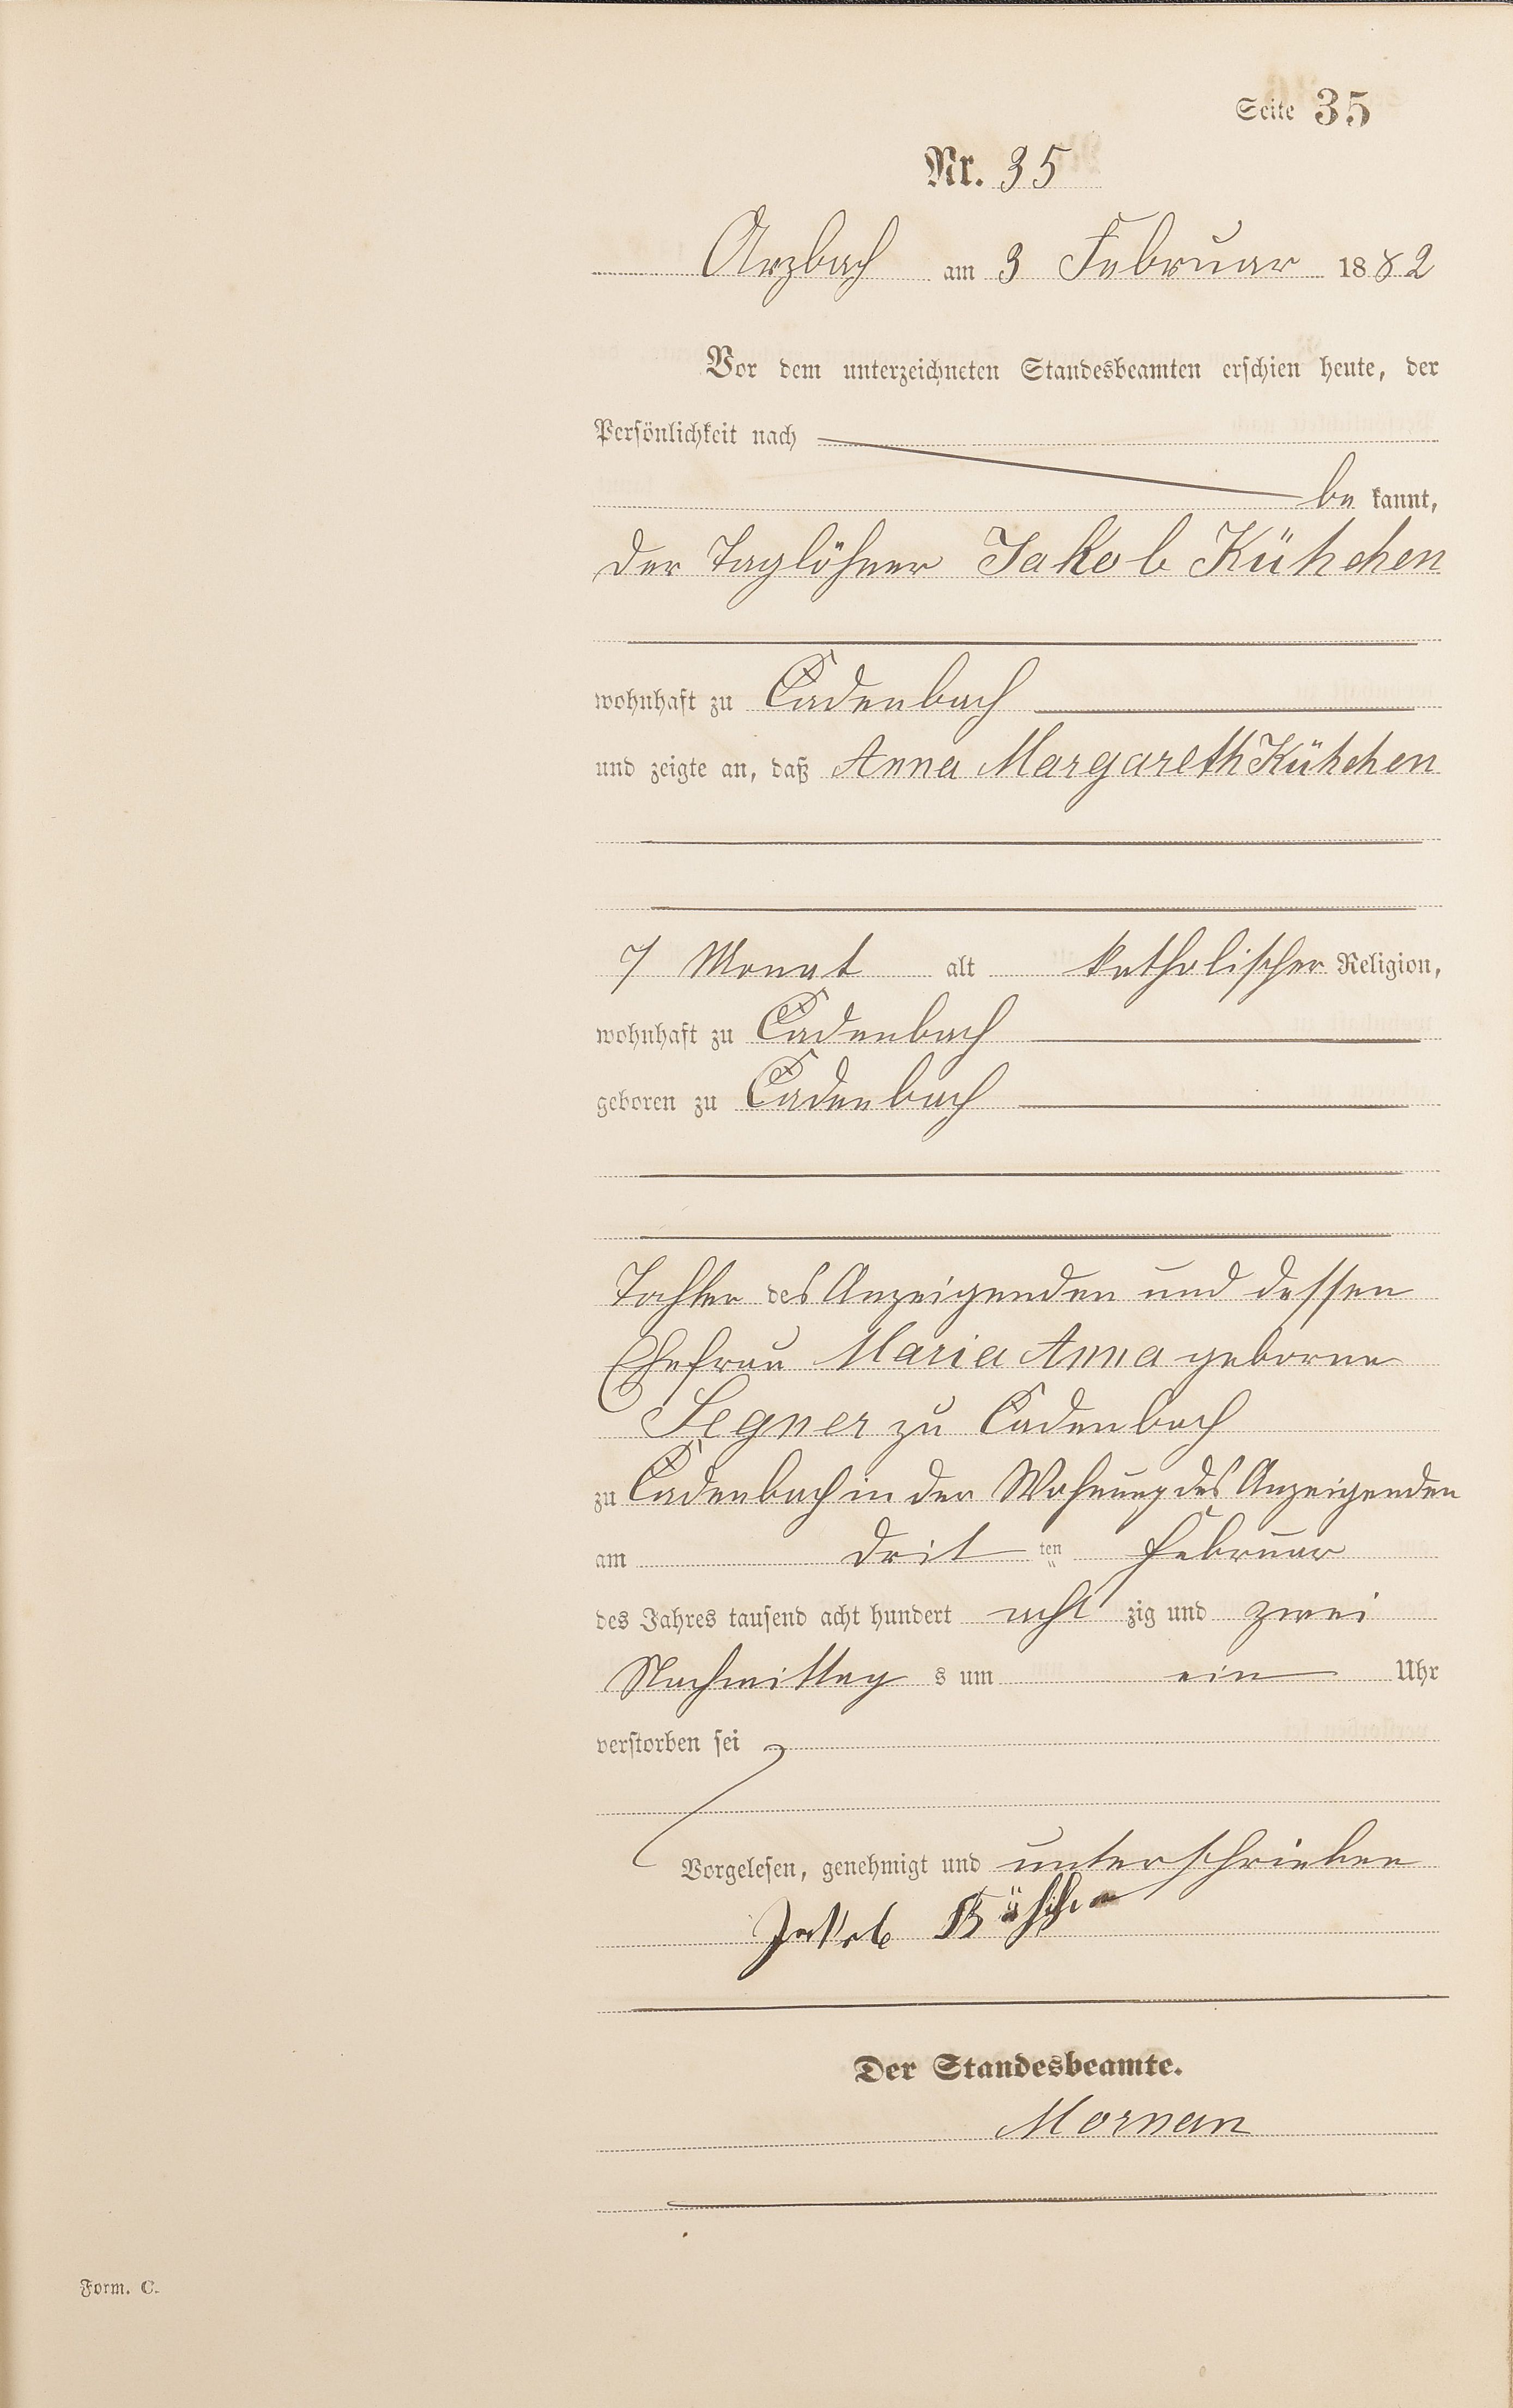 Seite 35
Nr. 35
Arzbach am 3 Februar 1882
Vor dem unterzeichneten Standesbeamten erschien heute, der
Persönlichkeit nach
be kannt,
der Taglöhner Jakob Kühchen
wohnhaft zu Cadenbach
und zeigte an, daß Anna Margareth Kühchen
7 Monat alt katholischer Religion,
wohnhaft zu Cadenbach
geboren zu Cadenbach
Tochter des Anzeigenden und dessen
Ehefrau Maria Anna geborne
Segner zu Cadenbach
zu Cadenbach in der Wohnung des Anzeigenden
am drit ten Februar
des Jahres tausend acht hundert acht zig und zwei
Nachmittag s um ein Uhr
verstorben sei
Vorgelesen, genehmigt und unterschrieben
Jakob Kühchen
Der Standesbeamte.
Mornan
Form. C.